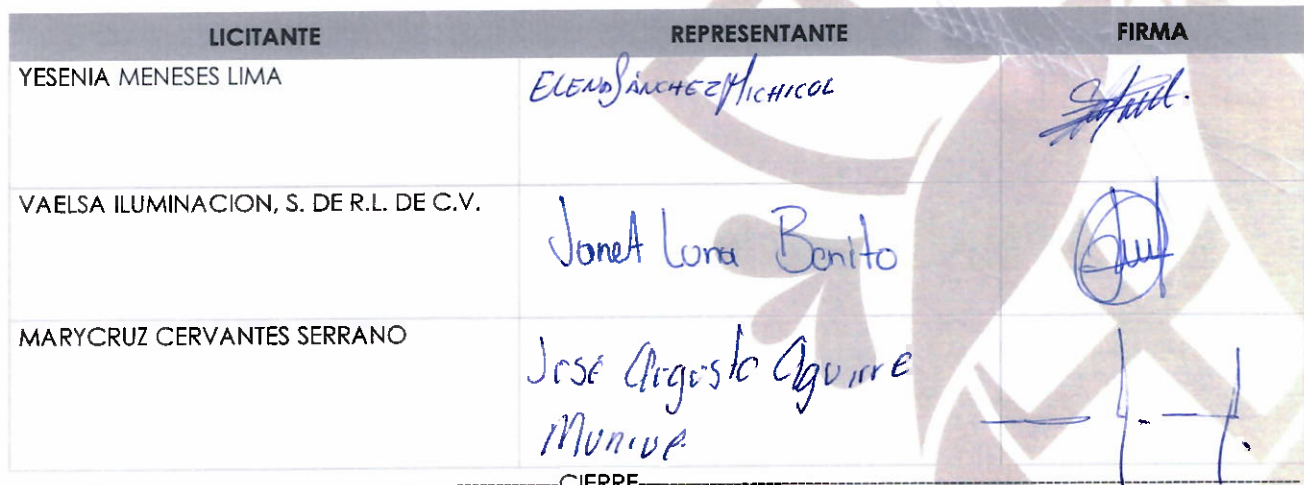 LICITANTE REPRESENTANTE FIRMA
YESENIA MENESES LIMA ELENA SÁNCHEZ MICHICOL
VAELSA ILUMINACION, S. DE R.L. DE C.V. Janet Luna Benito
MARYCRUZ CERVANTES SERRANO José Augusto Aguirre
Munive
CIERRE